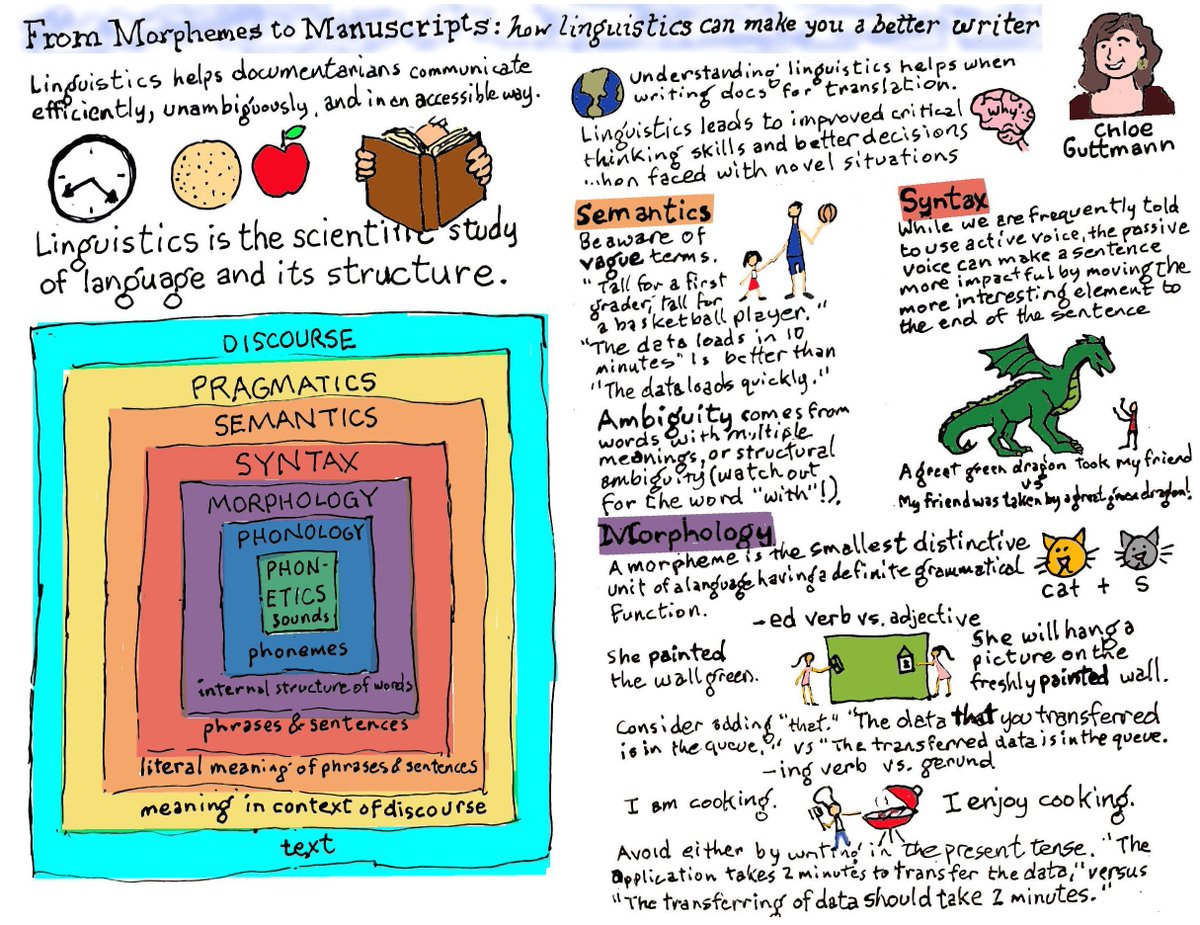 From Morphemes to Manuscripts: how linguistics can make you a better writer
Linguistics helps documentarians communicate
efficiently, unambiguously, and in an accessible way.
Linguistics is the scientific study
of language and its structure.
DISCOURSE
PRAGMATICS
SEMANTICS
SYNTAX
MORPHOLOGY
PHONOLOGY
PHON-
ETICS
sounds
phonemes
internal structure of words
phrases & sentences
literal meaning of phrases & sentences
meaning in context of discourse
text
understanding linguistics helps when
writing docs for translation.
Linguistics leads to improved critical
thinking skills and better decisions
when faced with novel situations
why
Chloe
Guttmann
Semantics
Be aware of
vague terms.
"Tall for a first
grader, tall for
a basketball player."
"The data loads in 10
minutes" is better than
"The data loads quickly."
Ambiguity comes from
words with multiple
meanings, or structural
ambiguity (watch out
for the word "with"!).
Syntax
While we are frequently told
to use active voice, the passive
voice can make a sentence
more impactful by moving the
more interesting element to
the end of the sentence
A great green dragon took my friend
vs
My friend was taken by a great green dragon!
Morphology
A morpheme is the smallest distinctive
unit of a language having a definite grammatical
function.
cat + s
-ed verb vs. adjective
She painted
the wall green.
She will hang a
picture on the
freshly painted wall.
Consider adding "that." "The data that you transferred
is in the queue," vs "The transferred data is in the queue.
-ing verb vs. gerund
I am cooking.
I enjoy cooking.
Avoid either by writing in the present tense. "The
application takes 2 minutes to transfer the data," versus
"The transferring of data should take 2 minutes."